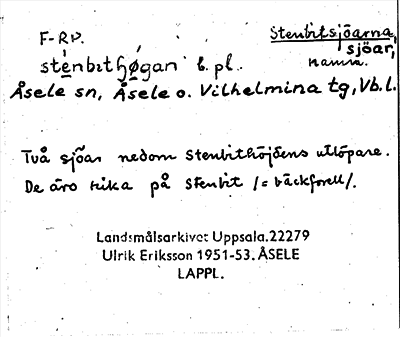 F-RP. Stenbitsjöarna,
sjöar,
namn.
stènbɩtʃǿgan b. pl.
Åsele sn, Åsele o. Vilhelmina tg, Vb. l.
Två sjöar nedom Stenbithöjdens utlöpare.
De äro rika på stenbit /= bäckforell/.
Landsmålsarkivet Uppsala. 22279
Ulrik Eriksson 1951-53. ÅSELE
LAPPL.